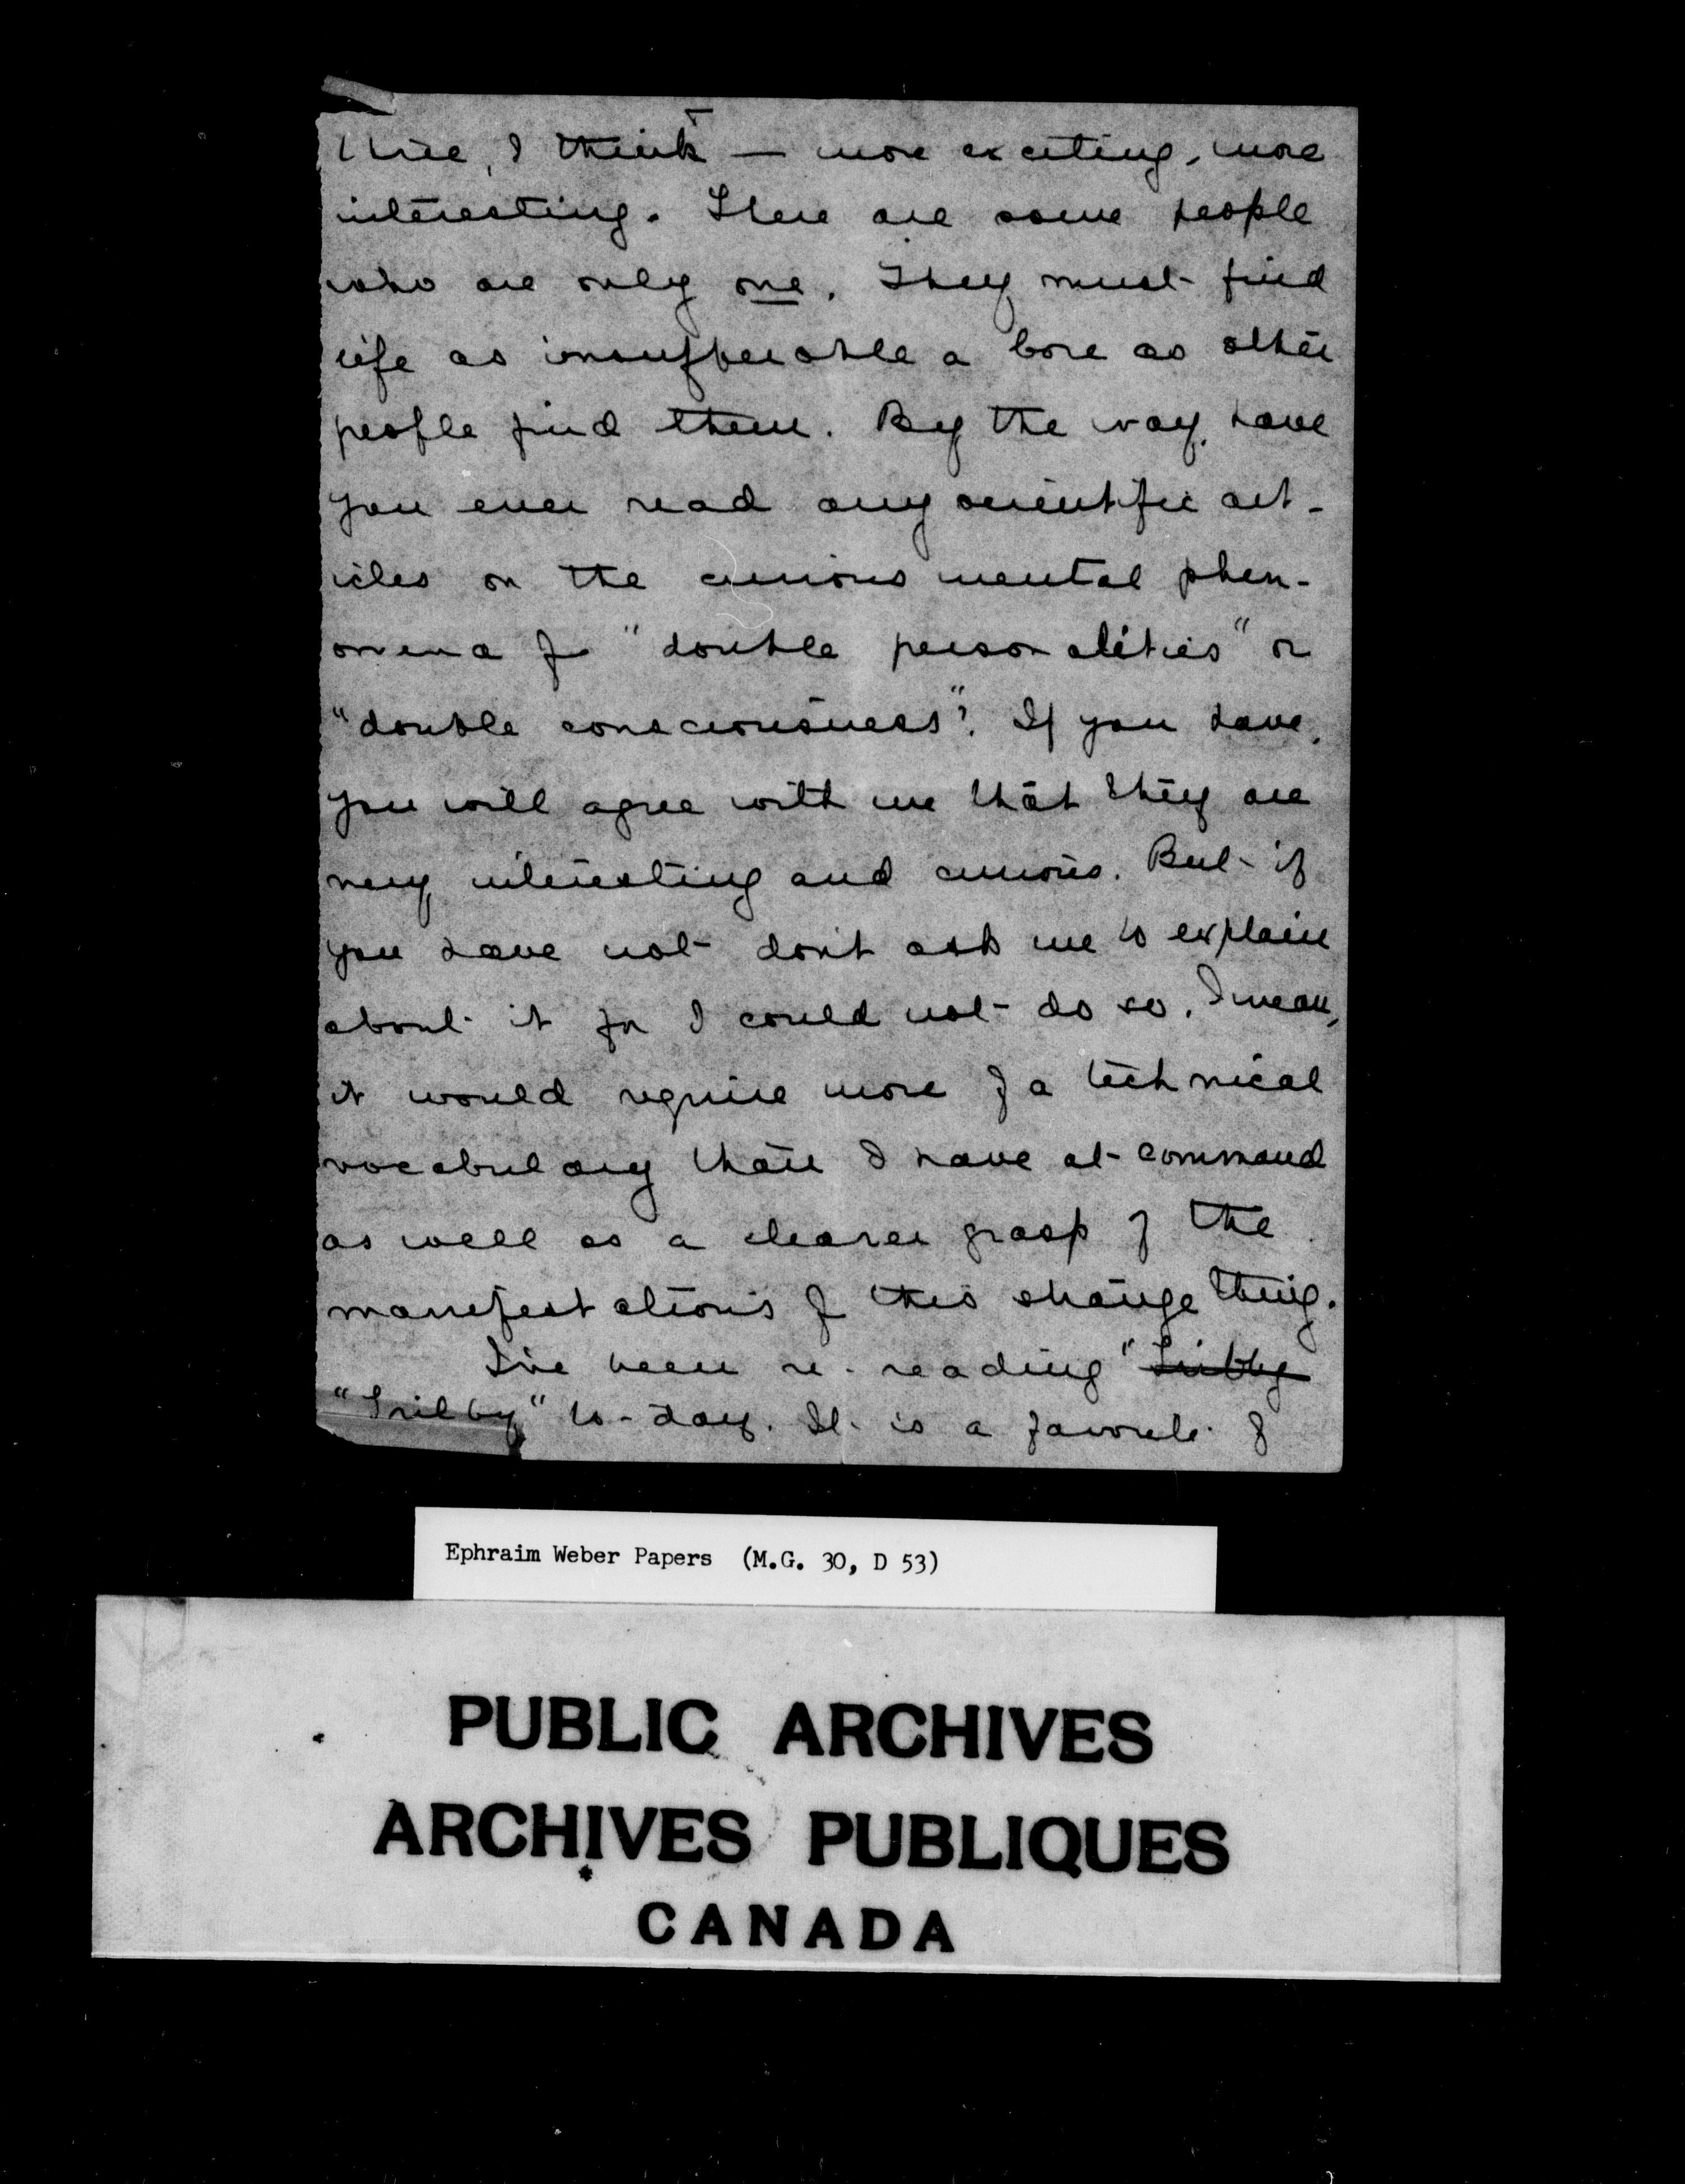 nice, I think — more exciting, more
interesting. There are some people
who are only one. They must find
life as insufferable a bore as other
people find them. By the way, have
you ever read any scientific art-
icles on the curious mental phen-
omena of "double personalities" or
"double consciousness"? If you have,
you will agree with me that they are
very interesting and curious. But if
you have not don't ask me to explain
about it for I could not do so. I mean,
it would require more of a technical
vocabulary than I have at command
as well as a clearer grasp of the
manifestations of this strange thing.
I've been re-reading "Trilby
"Trilby" to-day. It is a favorite of
Ephraim Weber Papers (M.G. 30, D 53)
PUBLIC ARCHIVES
ARCHIVES PUBLIQUES
CANADA